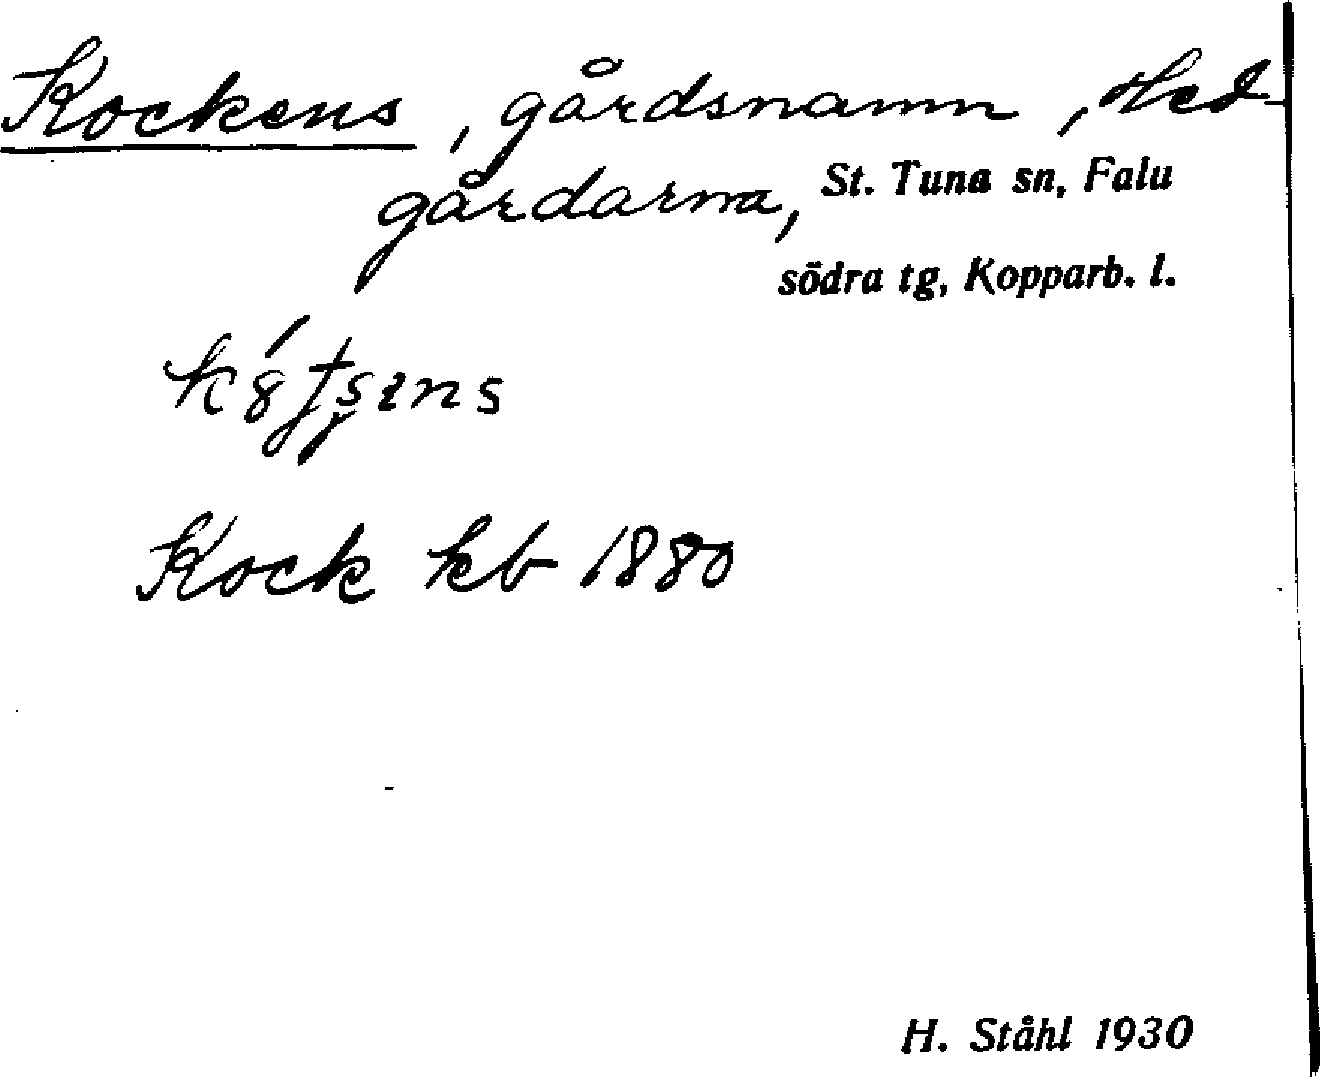 Kockens, gårdsnamn, Hed-
gårdarna, St. Tuna sn, Falu
södra tg, Kopparb. l.
Kock kb 1880
H. Ståhl 1930